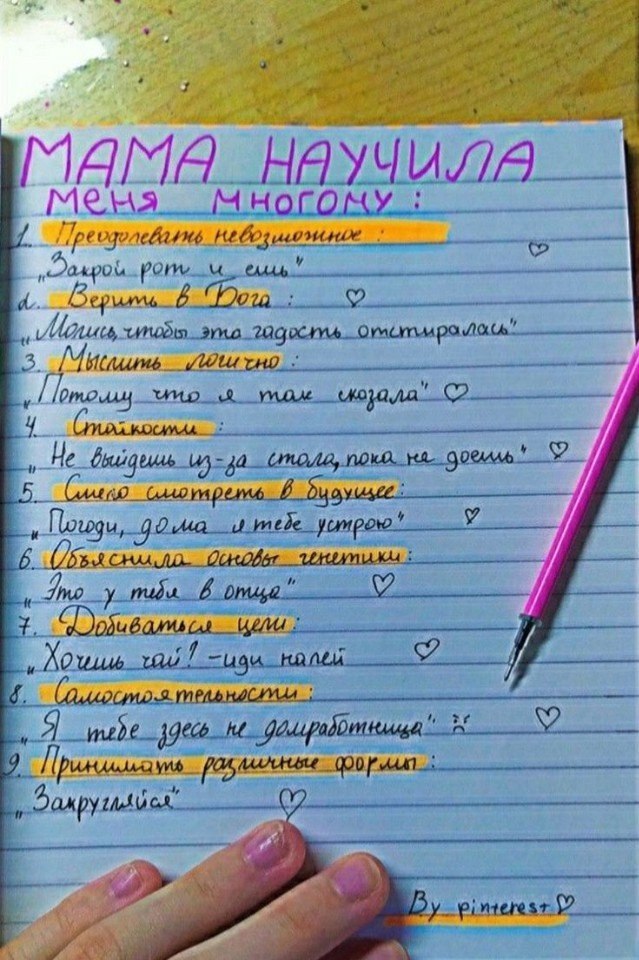 МАМА НАУЧИЛА
меня многому :
1. Преодолевать невозможное :
„Закрой рот и ешь"
2. Верить в Бога :
„Молись, чтобы эта гадость отстиралась"
3. Мыслить логично :
„Потому что я так сказала"
4. Стойкости :
„Не выйдешь из-за стола, пока не доешь"
5. Смело смотреть в будущее:
„Погоди, дома я тебе устрою"
6. Объяснила основы генетики:
„Это у тебя в отца"
7. Добиваться цели:
„Хочешь чай? - иди налей
8. Самостоятельности:
„Я тебе здесь не домработница"
9. Принимать различные формы :
„Закругляйся"
By pinterest